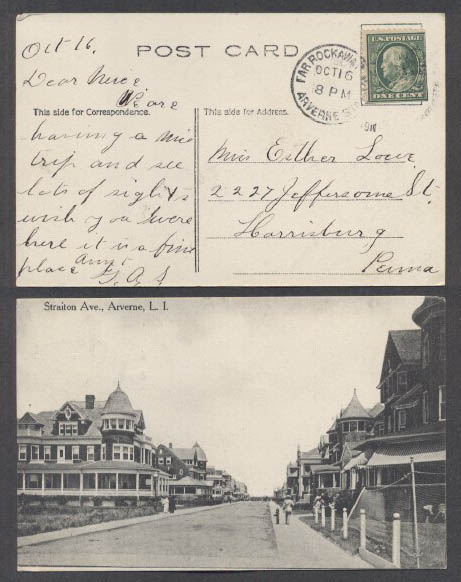 Oct 16,
POST CARD
U.S. POSTAGE
ONE CENT
FAR ROCKAWAY
OCT 16
8 PM
ARVERNE STA
Dear Niece
We are
This side for Correspondence.
This side for Address.
having a nice
trip and see
lots of sights
wish you were
here it is a fine
place Aunt
Miss Esther Lowe
2227 Jefferson St.
Harrisburg
Penna
Straiton Ave., Arverne, L. I.